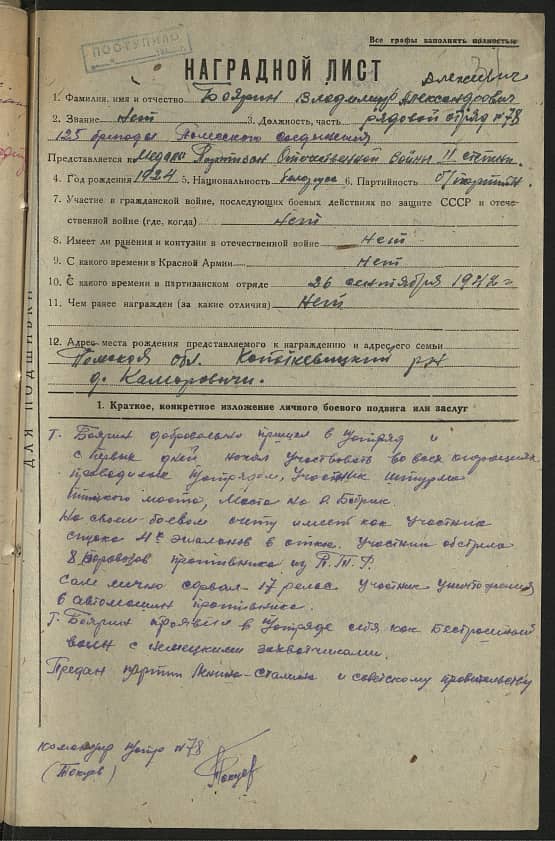 Все графы заполнять полностью
ПОСТУПИЛО
НАГРАДНОЙ ЛИСТ
Алексеевич
1. Фамилия, имя и отчество Боярин Владимир Александрович
2. Звание Нет 3. Должность, часть рядовой отряд №78
125 бригады Полесского соединения
Представляется к Медали Партизан Отечественной Войны II степени
4. Год рождения 1924 5. Национальность белорус 6. Партийность б/партийн.
7. Участие в гражданской войне, последующих боевых действиях по защите СССР и отече-
ственной войне (где, когда) нет
8. Имеет ли ранения и контузии в отечественной войне нет
9. С какого времени в Красной Армии нет
10. С какого времени в партизанском отряде 26 сентября 1942 г
11. Чем ранее награжден (за какие отличия) Нет
12. Адрес места рождения представляемого к награждению и адрес его семьи
Полеская обл. Копаткевицкий р-н
д. Каморовичи.
ДЛЯ ПОДШИВКИ
1. Краткое, конкретное изложение личного боевого подвига или заслуг
Т. Боярин добровольно пришел в отряд и
с первых дней начал участвовать во всех операциях
проводимых отрядом, участник штурма
моста, Моста на р Птичь.
На своем боевом счету имеет как участник
спуска 4х эшалонов в откос. Участник обстрела
8 паровозов противника из П.Т.Р.
Сам лично сорвал 17 рельс участник уничтожения
в автомашин противника.
Т. Боярин проявил в отряде себя как бестрашный
воин с немецкими захватчиками.
Предан партии Ленина-Сталина и советскому правительству
Командир отр №78